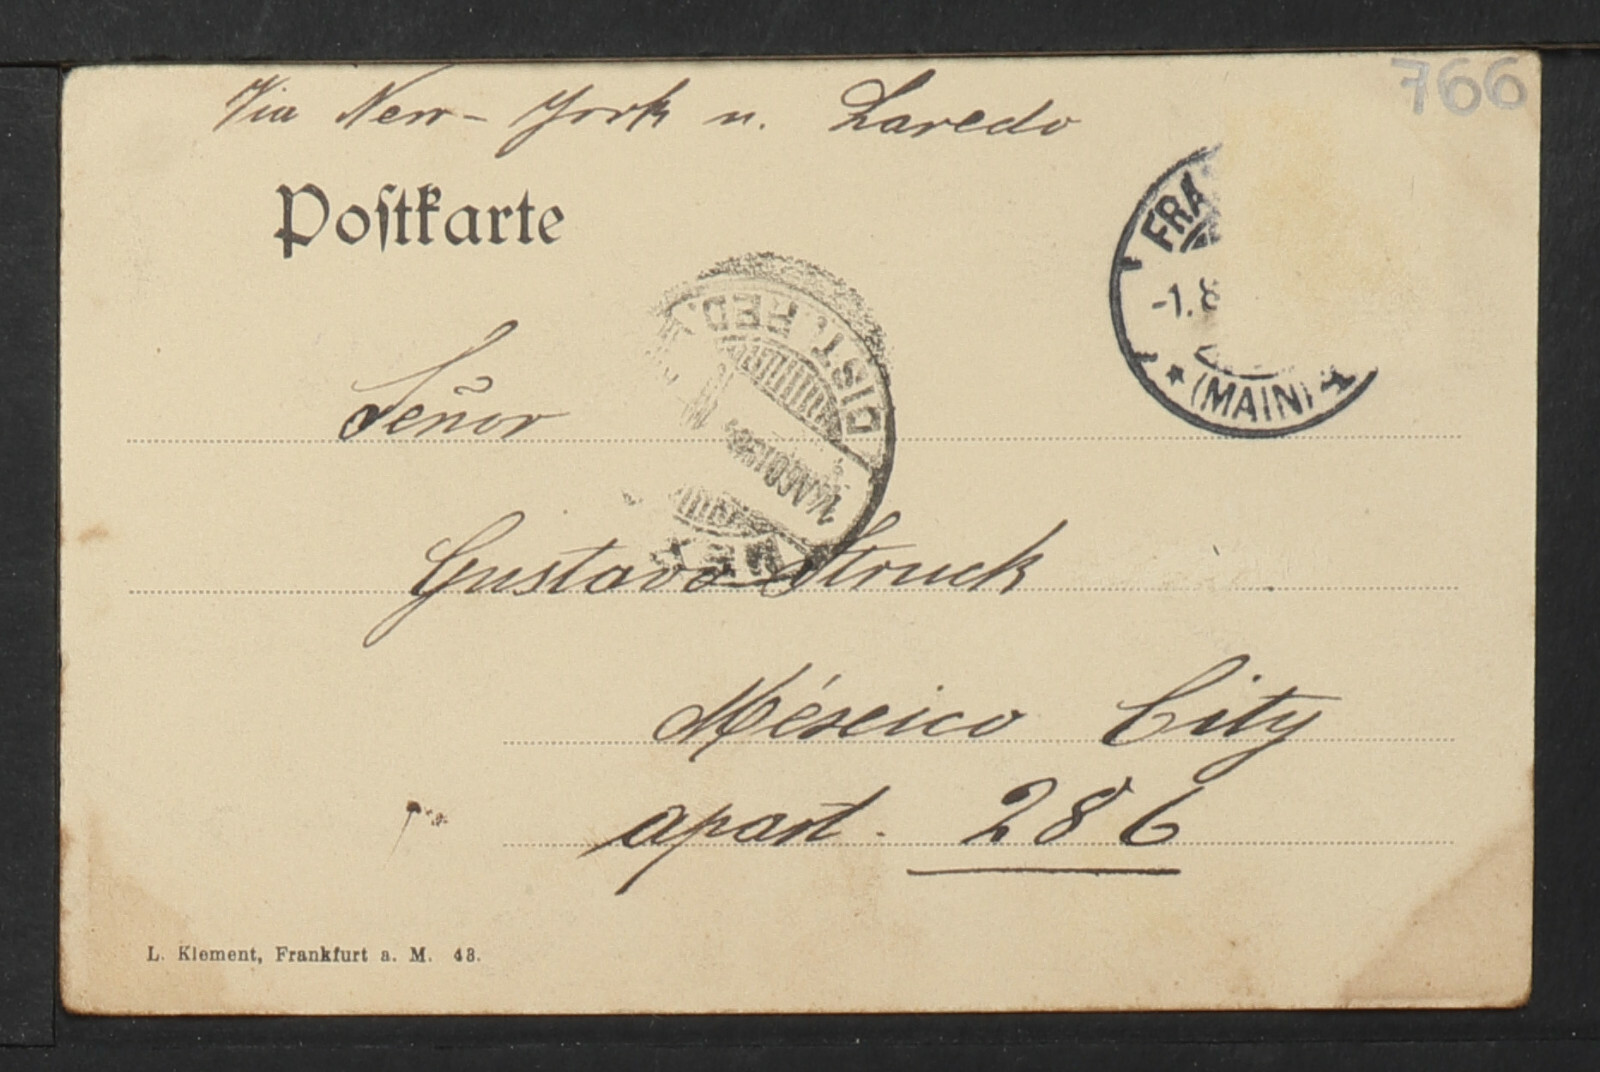 766
Via New-York u. Laredo
Poſtkarte
FRA
-1.8
* (MAIN) 1
DIST. FED.
14 AGO
MEX
Señor
Gustavo Struck
México City
apart. 286
L. Klement, Frankfurt a. M. 48.